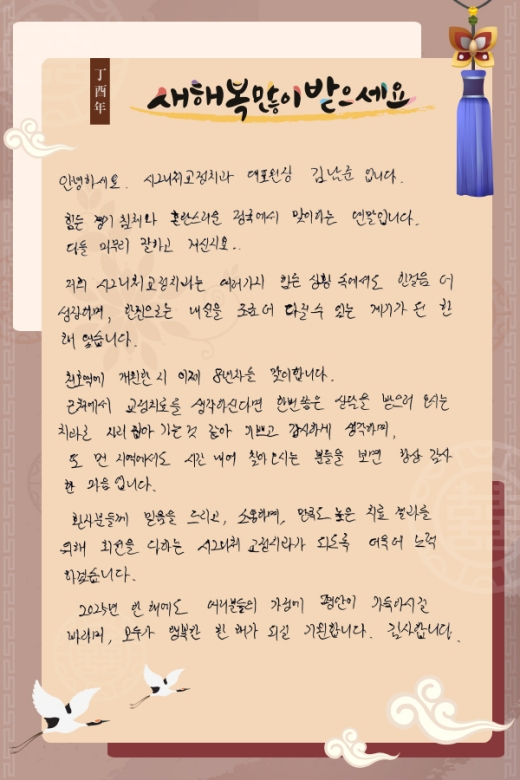 丁酉年
새해 복 많이 받으세요
안녕하세요. 시그니쳐교정치과 대표원장 김남준 입니다.
힘든 경기 침체와 혼란스러운 정국에서 맞이하는 연말입니다.
다들 마무리 잘하고 계신지요..
저희 시그니쳐교정치과는 여러가지 힘든 상황 속에서도 한걸음 더
성장하며, 한편으로는 내실을 조금 더 다질 수 있는 계기가 된 한
해 였습니다.
천호역에 개원한 시 이제 8년차를 맞이합니다.
근처에서 교정치료를 생각하신다면 한번쯤은 상담을 받으러 오시는
치과로 자리 잡아 가는 것 같아 기쁘고 감사하게 생각하며,
또 먼 지역에서도 시간 내어 찾아오시는 분들을 보면 항상 감사
한 마음입니다.
환자분들께 믿음을 드리고, 소통하며, 만족도 높은 치료 결과를
위해 최선을 다하는 시그니쳐 교정치과가 되도록 더욱더 노력
하겠습니다.
2025년 한 해에도 여러분들의 가정에 평안이 가득하시길
바라며, 모두가 행복한 한 해가 되길 기원합니다. 감사합니다.